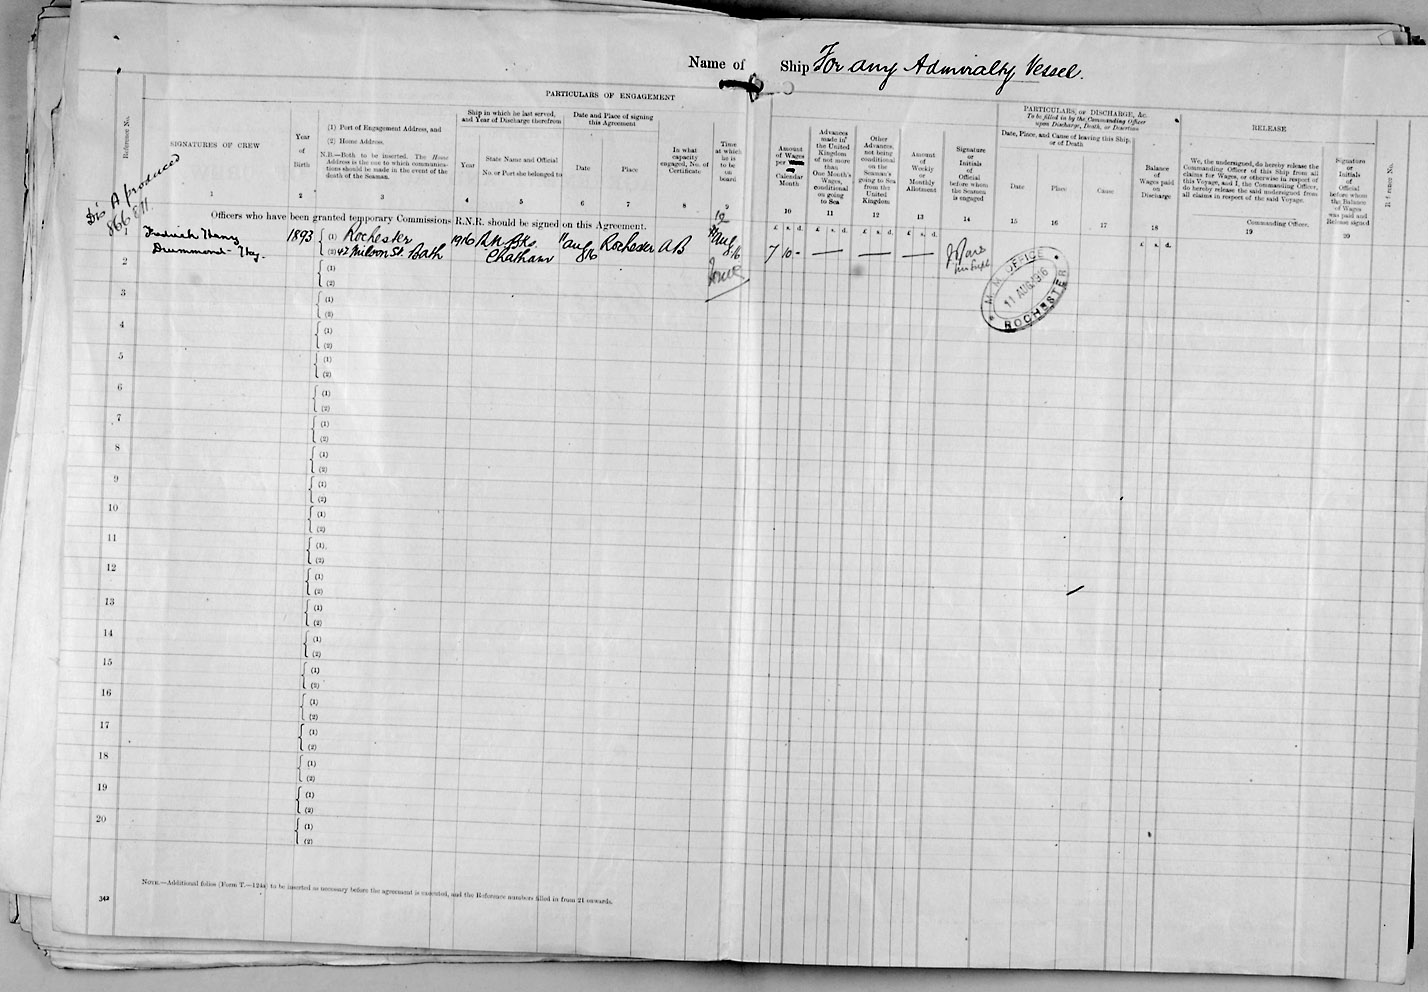 Name of Ship For any Admiralty Vessel.
PARTICULARS OF ENGAGEMENT
Reference No.
SIGNATURES OF CREW
1
Year
of
Birth
2
(1) Port of Engagement Address, and
(2) Home Address.
N.B.—Both to be inserted. The Home
Address is the one to which communica-
tions should be made in the event of the
death of the Seaman.
3
Ship in which he last served,
and Year of Discharge therefrom
Year
4
State Name and Official
No. or Port she belonged to
5
Date and Place of signing
this Agreement
Date
6
Place
7
In what
capacity
engaged, No. of
Certificate
8
Time
at which
he is
to be
on
board
9
Amount
of Wages
per
Calendar
Month
10
Advances
made in
the United
Kingdom
of not more
than
One Month's
Wages,
conditional
on going
to Sea
11
Other
Advances,
not being
conditional
on the
Seaman's
going to Sea
from the
United
Kingdom
12
Amount
of
Weekly
or
Monthly
Allotment
13
Signature
or
Initials
of
Official
before whom
the Seaman
is engaged
14
PARTICULARS OF DISCHARGE, &c.
To be filled in by the Commanding Officer
upon Discharge, Death, or Desertion
Date, Place, and Cause of leaving this Ship,
or of Death
Date
15
Place
16
Cause
17
Balance
of
Wages paid
on
Discharge
18
RELEASE
We, the undersigned, do hereby release the
Commanding Officer of this Ship from all
claims for Wages, or otherwise in respect of
this Voyage, and I, the Commanding Officer,
do hereby release the said undersigned from
all claims in respect of the said Voyage.
Commanding Officer.
19
Signature
or
Initials
of
Official
before whom
the Balance
of Wages
was paid and
Release signed
20
Reference No.
Dis A produced
866 811
Officers who have been granted temporary Commissions R.N.R. should be signed on this Agreement.
£ s. d. £ s. d. £ s. d. £ s. d. £ s. d.
1 Frederick Henry 1893 (1) Rochester 1916 R.N. Bks. 11 Aug Rochester AB 12 11 Aug
Drummond (2) 42 Milsom St. Bath Chatham 16 16 7 10 - — — —
2 (1)
(2)
M. M. OFFICE
11 AUG 1916
ROCHESTER
3 (1)
(2)
4 (1)
(2)
5 (1)
(2)
6 (1)
(2)
7 (1)
(2)
8 (1)
(2)
9 (1)
(2)
10 (1)
(2)
11 (1)
(2)
12 (1)
(2)
13 (1)
(2)
14 (1)
(2)
15 (1)
(2)
16 (1)
(2)
17 (1)
(2)
18 (1)
(2)
19 (1)
(2)
20 (1)
(2)
NOTE.—Additional folios (Form T.—124a) to be inserted as necessary before the agreement is executed, and the Reference numbers filled in from 21 onwards.
342